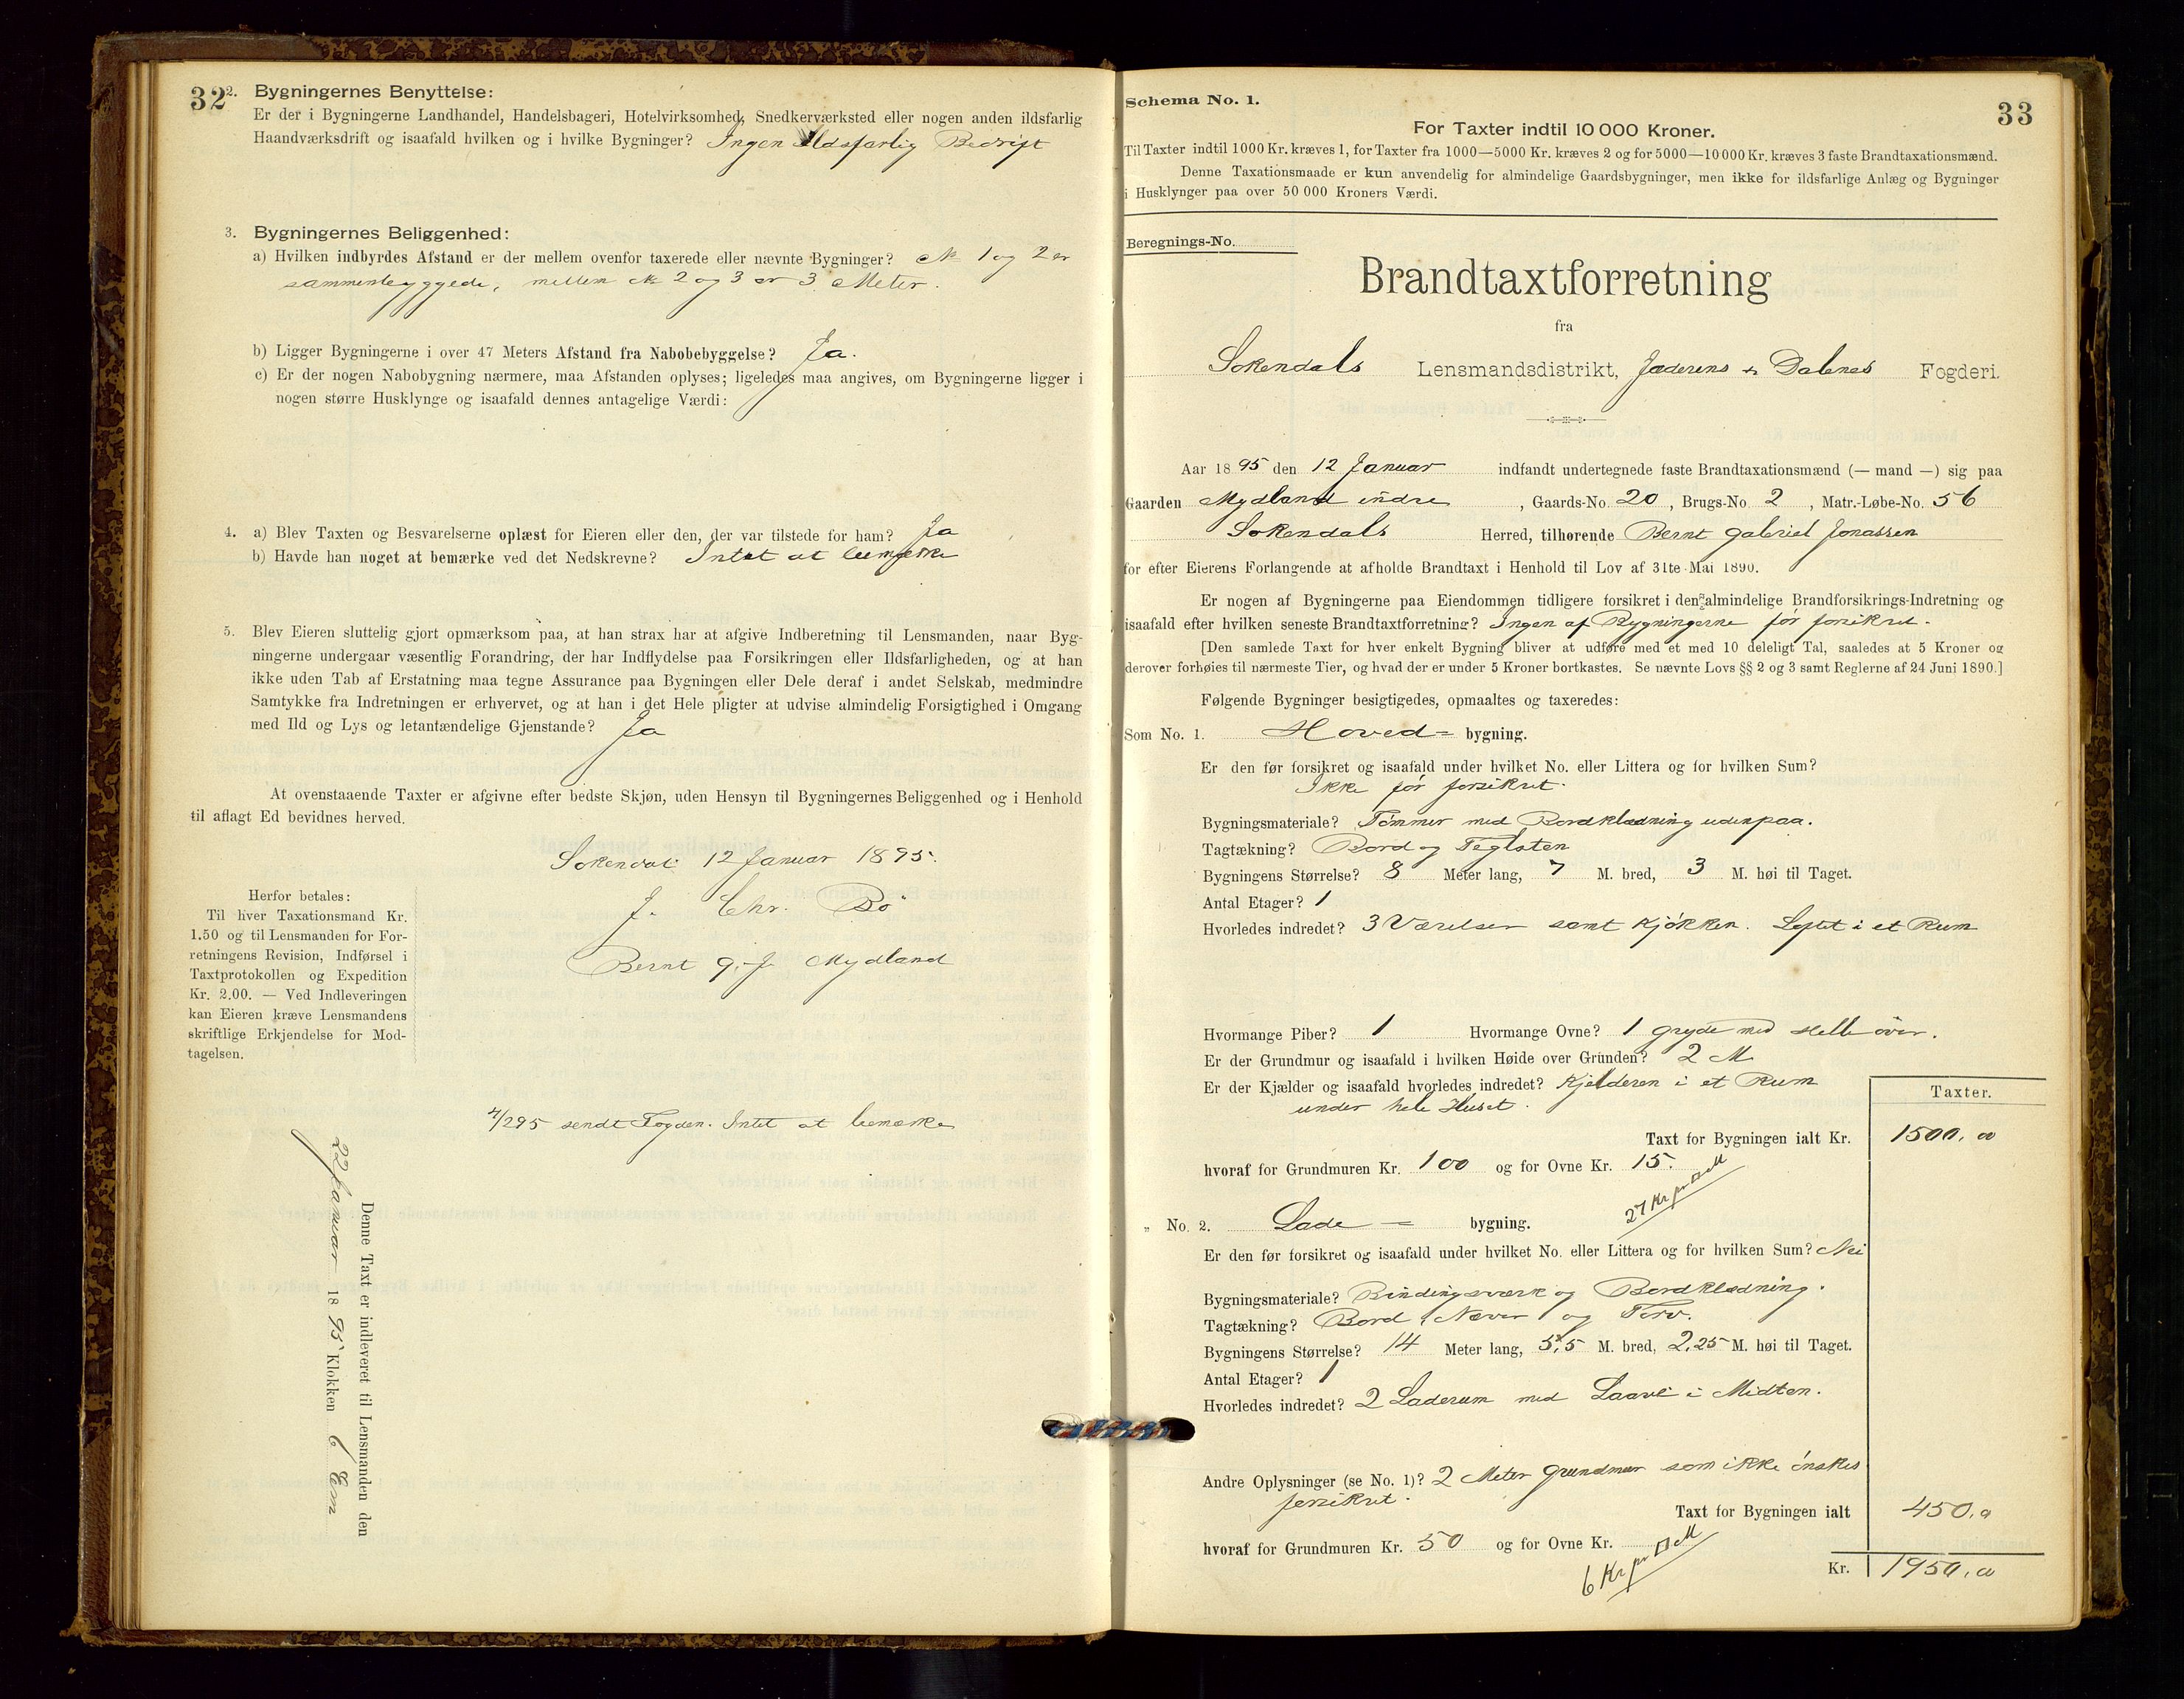 32
2. Bygningernes Benyttelse:
Er der i Bygningerne Landhandel, Handelsbageri, Hotelvirksomhed, Snedkerværksted eller nogen anden ildsfarlig
Haandværksdrift og isaafald hvilken og i hvilke Bygninger? Ingen Ildsfarlig Bedrift
3. Bygningernes Beliggenhed:
a) Hvilken indbyrdes Afstand er der mellem ovenfor taxerede eller nævnte Bygninger? No 1 og 2 er
sammenbyggede, mellem No 2 og 3 er 3 Meter.
b) Ligger Bygningerne i over 47 Meters Afstand fra Nabobebyggelse? Ja.
c) Er der nogen Nabobygning nærmere, maa Afstanden oplyses; ligeledes maa angives, om Bygningerne ligger i
nogen større Husklynge og isaafald dennes antagelige Værdi:
4. a) Blev Taxten og Besvarelserne oplæst for Eieren eller den, der var tilstede for ham? Ja
b) Havde han noget at bemærke ved det Nedskrevne? Intet at bemærke
5. Blev Eieren sluttelig gjort opmærksom paa, at han strax har at afgive Indberetning til Lensmanden, naar Byg-
ningerne undergaar væsentlig Forandring, der har Indflydelse paa Forsikringen eller Ildsfarligheden, og at han
ikke uden Tab af Erstatning maa tegne Assurance paa Bygningen eller Dele deraf i andet Selskab, medmindre
Samtykke fra Indretningen er erhvervet, og at han i det Hele pligter at udvise almindelig Forsigtighed i Omgang
med Ild og Lys og letantændelige Gjenstande? Ja
At ovenstaaende Taxter er afgivne efter bedste Skjøn, uden Hensyn til Bygningernes Beliggenhed og i Henhold
til aflagt Ed bevidnes herved.
Sokendal 12 Januar 1895.
J. Chr. Bö
Bernt G. J. Mydland
Herfor betales:
Til hver Taxationsmand Kr.
1.50 og til Lensmanden for For-
retningens Revision, Indførsel i
Taxtprotokollen og Expedition
Kr. 2.00. — Ved Indleveringen
kan Eieren kræve Lensmandens
skriftlige Erkjendelse for Mod-
tagelsen.
4/2 95 sendt Fogden. Intet at bemærke
Denne Taxt er indleveret til Lensmanden den
22 Januar 1895 Klokken 6 Em
33
Schema No. 1.
For Taxter indtil 10 000 Kroner.
Til Taxter indtil 1000 Kr. kræves 1, for Taxter fra 1000—5000 Kr. kræves 2 og for 5000—10 000 Kr. kræves 3 faste Brandtaxationsmænd.
Denne Taxationsmaade er kun anvendelig for almindelige Gaardsbygninger, men ikke for ildsfarlige Anlæg og Bygninger
i Husklynger paa over 50 000 Kroners Værdi.
Beregnings-No.
Brandtaxtforretning
fra
Sokendals Lensmandsdistrikt, Jæderens & Dalenes Fogderi.
Aar 1895 den 12 Januar indfandt undertegnede faste Brandtaxationsmænd (— mand —) sig paa
Gaarden Mydland indre, Gaards-No. 20, Brugs-No. 2, Matr.-Løbe-No. 56
Sokendals Herred, tilhørende Bernt Gabriel Jonassen
for efter Eierens Forlangende at afholde Brandtaxt i Henhold til Lov af 31te Mai 1890.
Er nogen af Bygningerne paa Eiendommen tidligere forsikret i den almindelige Brandforsikrings-Indretning og
isaafald efter hvilken seneste Brandtaxtforretning? Ingen af Bygningerne før forsikret.
[Den samlede Taxt for hver enkelt Bygning bliver at udføre med et med 10 deleligt Tal, saaledes at 5 Kroner og
derover forhøies til nærmeste Tier, og hvad der er under 5 Kroner bortkastes. Se nævnte Lovs §§ 2 og 3 samt Reglerne af 24 Juni 1890.]
Følgende Bygninger besigtigedes, opmaaltes og taxeredes:
Som No. 1. Hoved- bygning.
Er den før forsikret og isaafald under hvilket No. eller Littera og for hvilken Sum?
Ikke før forsikret.
Bygningsmateriale? Tømmer med Bordklædning udenpaa.
Tagtækning? Bord og Teglsten
Bygningens Størrelse? 8 Meter lang, 7 M. bred, 3 M. høi til Taget.
Antal Etager? 1
Hvorledes indredet? 3 Værelser samt Kjøkken. Loftet i et Rum
Hvormange Piber? 1 Hvormange Ovne? 1 gryde med Helle over.
Er der Grundmur og isaafald i hvilken Høide over Grunden? 2 M
Er der Kjælder og isaafald hvorledes indredet? Kjelderen i et Rum
under hele Huset.
Taxter.
Taxt for Bygningen ialt Kr. 1500,00
hvoraf for Grundmuren Kr. 100 og for Ovne Kr. 15.
27 Kr pr □ M
„ No. 2. Lade- bygning.
Er den før forsikret og isaafald under hvilket No. eller Littera og for hvilken Sum? Nei
Bygningsmateriale? Bindingsværk og Bordklædning.
Tagtækning? Bord, Næver og Torv.
Bygningens Størrelse? 14 Meter lang, 5,5 M. bred, 2,25 M. høi til Taget.
Antal Etager? 1
Hvorledes indredet? 2 Laderum med Laave i Midten.
Andre Oplysninger (se No. 1)? 2 Meter grundmur som ikke ønskes
forsikret.
Taxt for Bygningen ialt 450,00
hvoraf for Grundmuren Kr. 50 og for Ovne Kr.
6 Kr pr □ M
Kr. 1950,00